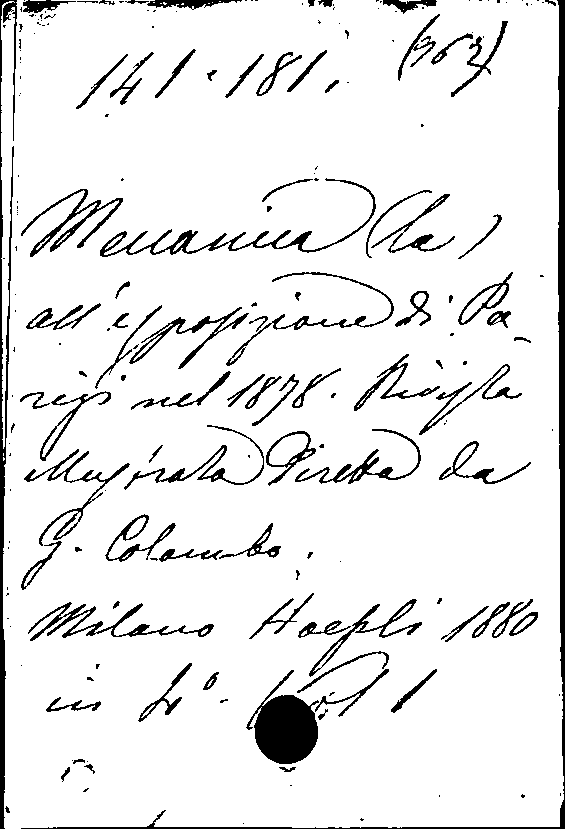 141. 181.
Meccanica (la)
all'esposizione di Pa-
rigi nel 1878. Rivista
illustrata diretta da
G. Colombo.
Milano Hoepli 1880
in 4º. Vol 1